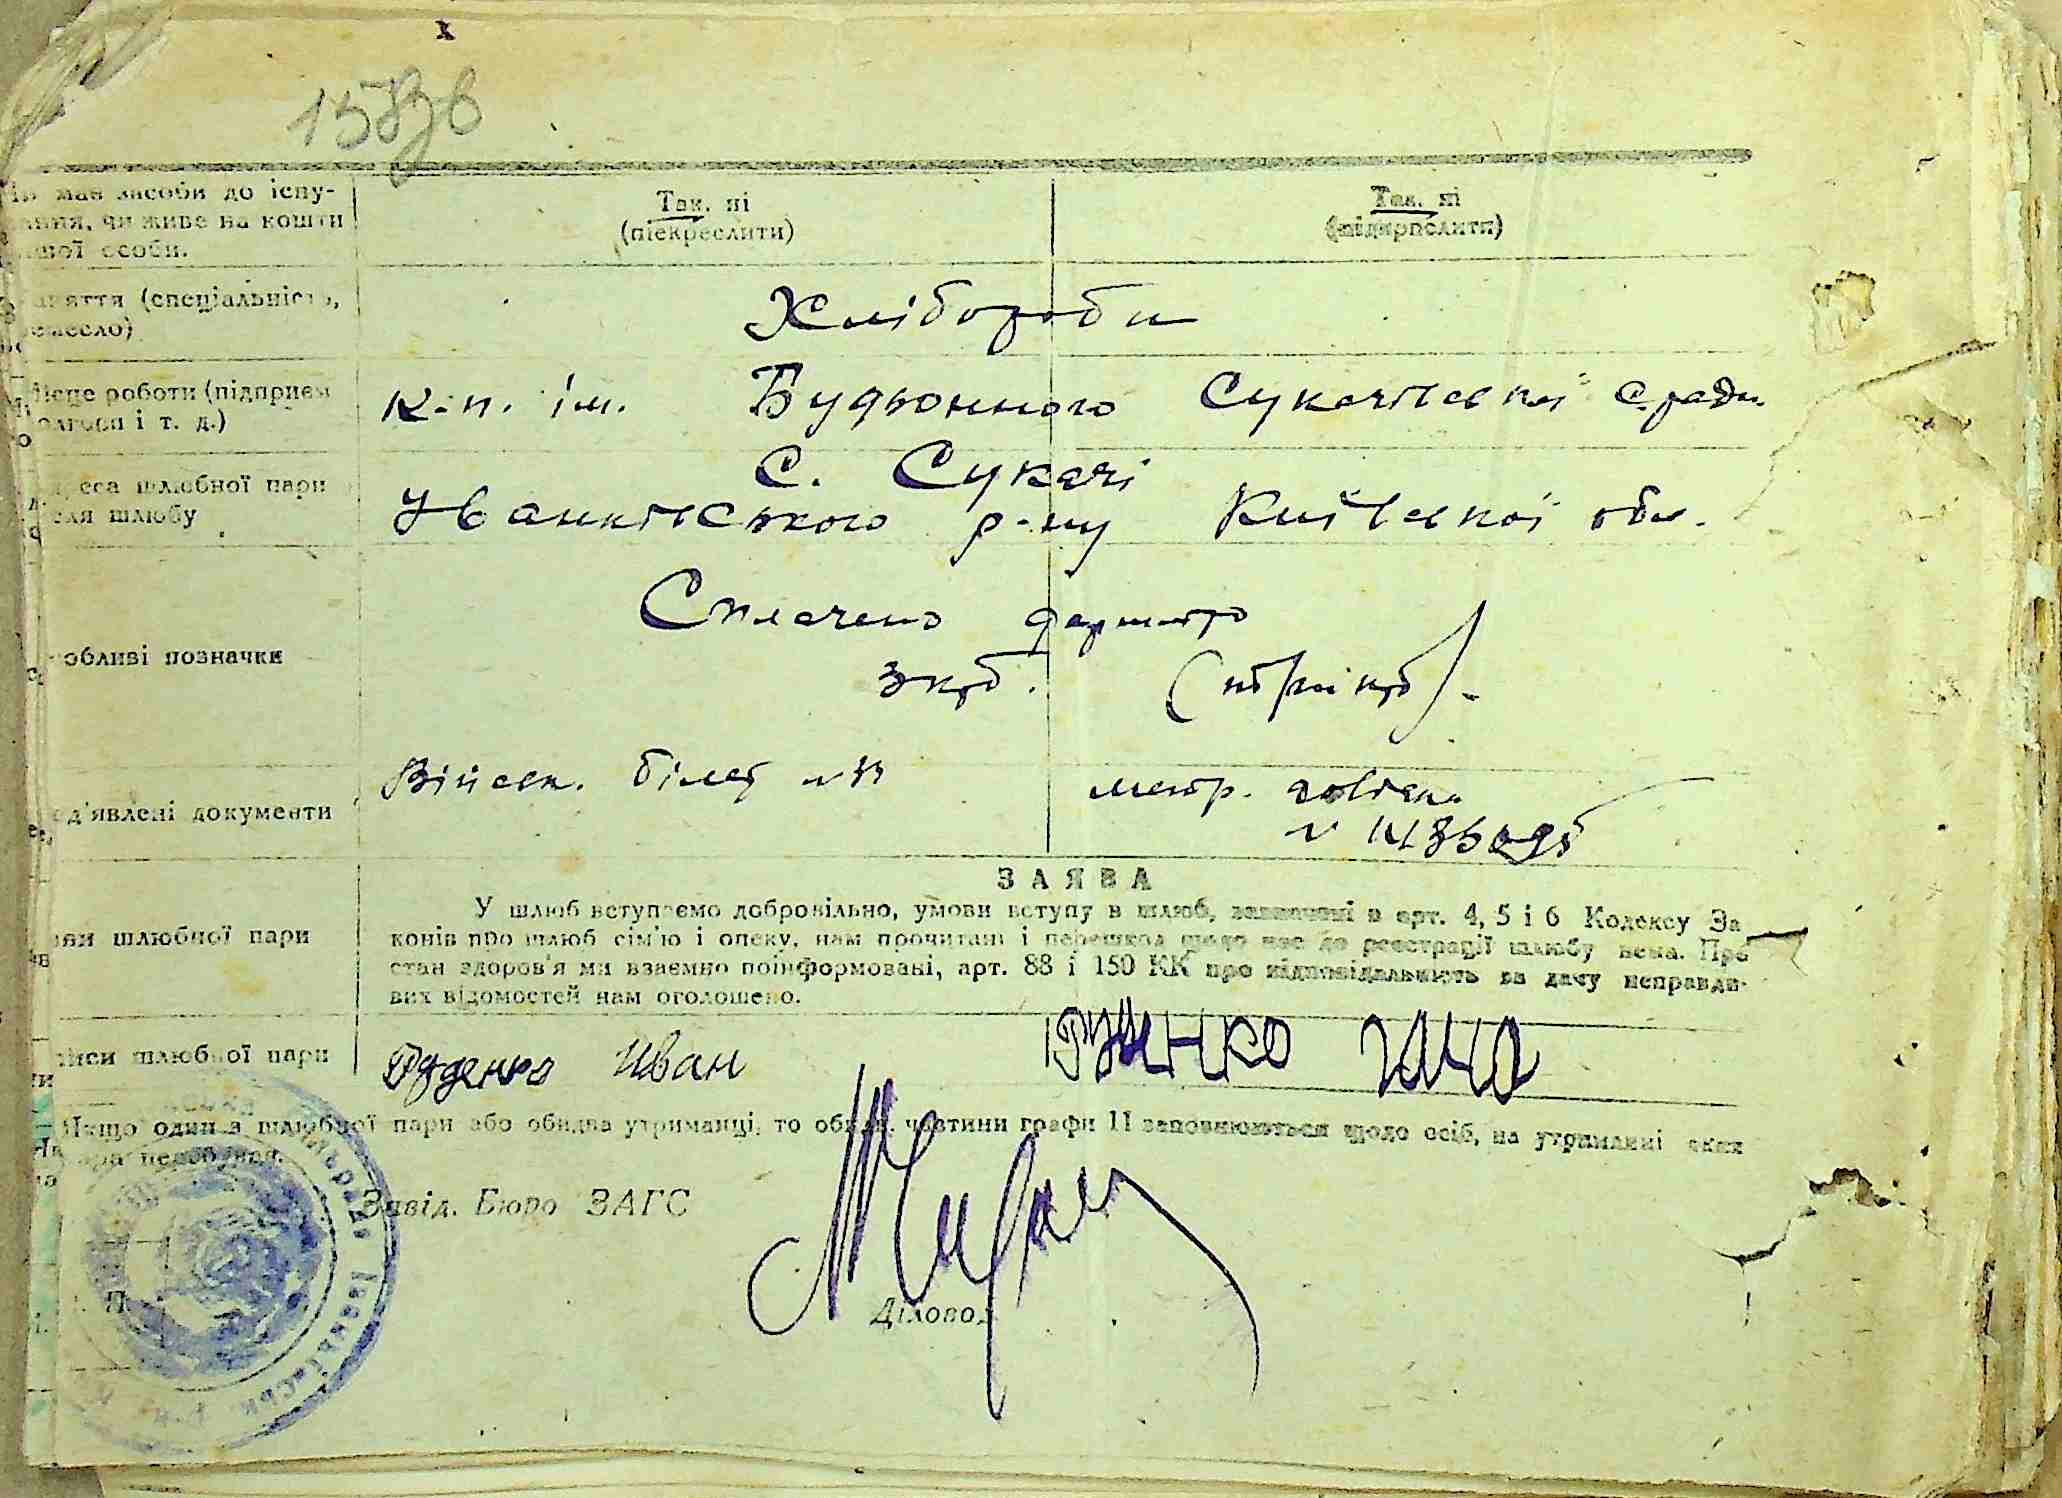 158зв
Чи має засоби до існу-
вання, чи живе на кошти
іншої особи.
Так. ні
(підкреслити)
Так. ні
(підкреслити)
Заняття (спеціальність,
ремесло)
Хлібороби
Місце роботи (підприєм
колгосп і т. д.)
к-п. ім. Будьонного Сукачівської с. ради
Адреса шлюбної пари
після шлюбу
с. Сукачі
Іванківського р-ну Київської обл.
Особливі позначки
Сплачено держмито
3 крб. (три крб).
Пред'явлені документи
Військ. білет №
метр. довідка
№
ЗАЯВА
У шлюб вступаємо добровільно, умови вступу в шлюб, зазначені в арт. 4, 5 і 6 Кодексу За
конів про шлюб сім'ю і опеку, нам прочитані і перешкод щодо нас до реєстрації шлюбу нема. Про
стан здоров'я ми взаємно поінформовані, арт. 88 і 150 КК про відповідальність за дачу неправди-
вих відомостей нам оголошено.
шлюбної пари
Підписи шлюбної пари
Руденко Иван
Якщо один з шлюбної пари або обидва утриманці, то обидві частини графи 11 заповнюються щодо осіб, на утриманні яких
пара перебуває.
Завід. Бюро ЗАГС
Діловод